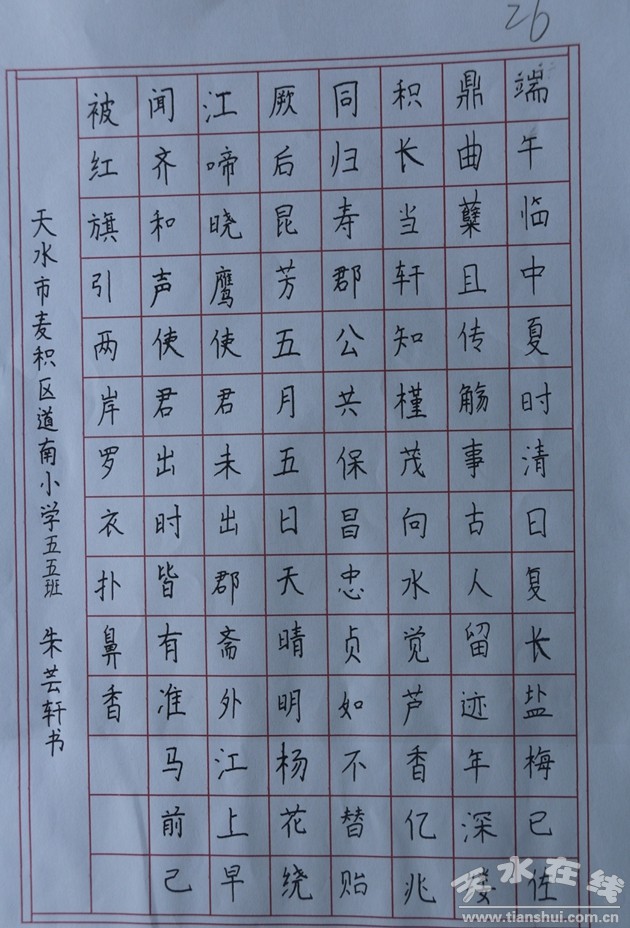 26
端午临中夏时清日复长盐梅已佐
鼎曲蘖且传觞事古人留迹年深
积长当轩知槿茂向水觉芦香亿兆
同归寿郡公共保昌忠贞如不替贻
厥后昆芳五月五日天晴明杨花绕
江啼晓鹰使君未出郡斋外江上早
闻齐和声使君出时皆有准马前己
被红旗引两岸罗衣扑鼻香
天水市麦积区道南小学五五班 朱芸轩书
天水在线
www.tianshui.com.cn